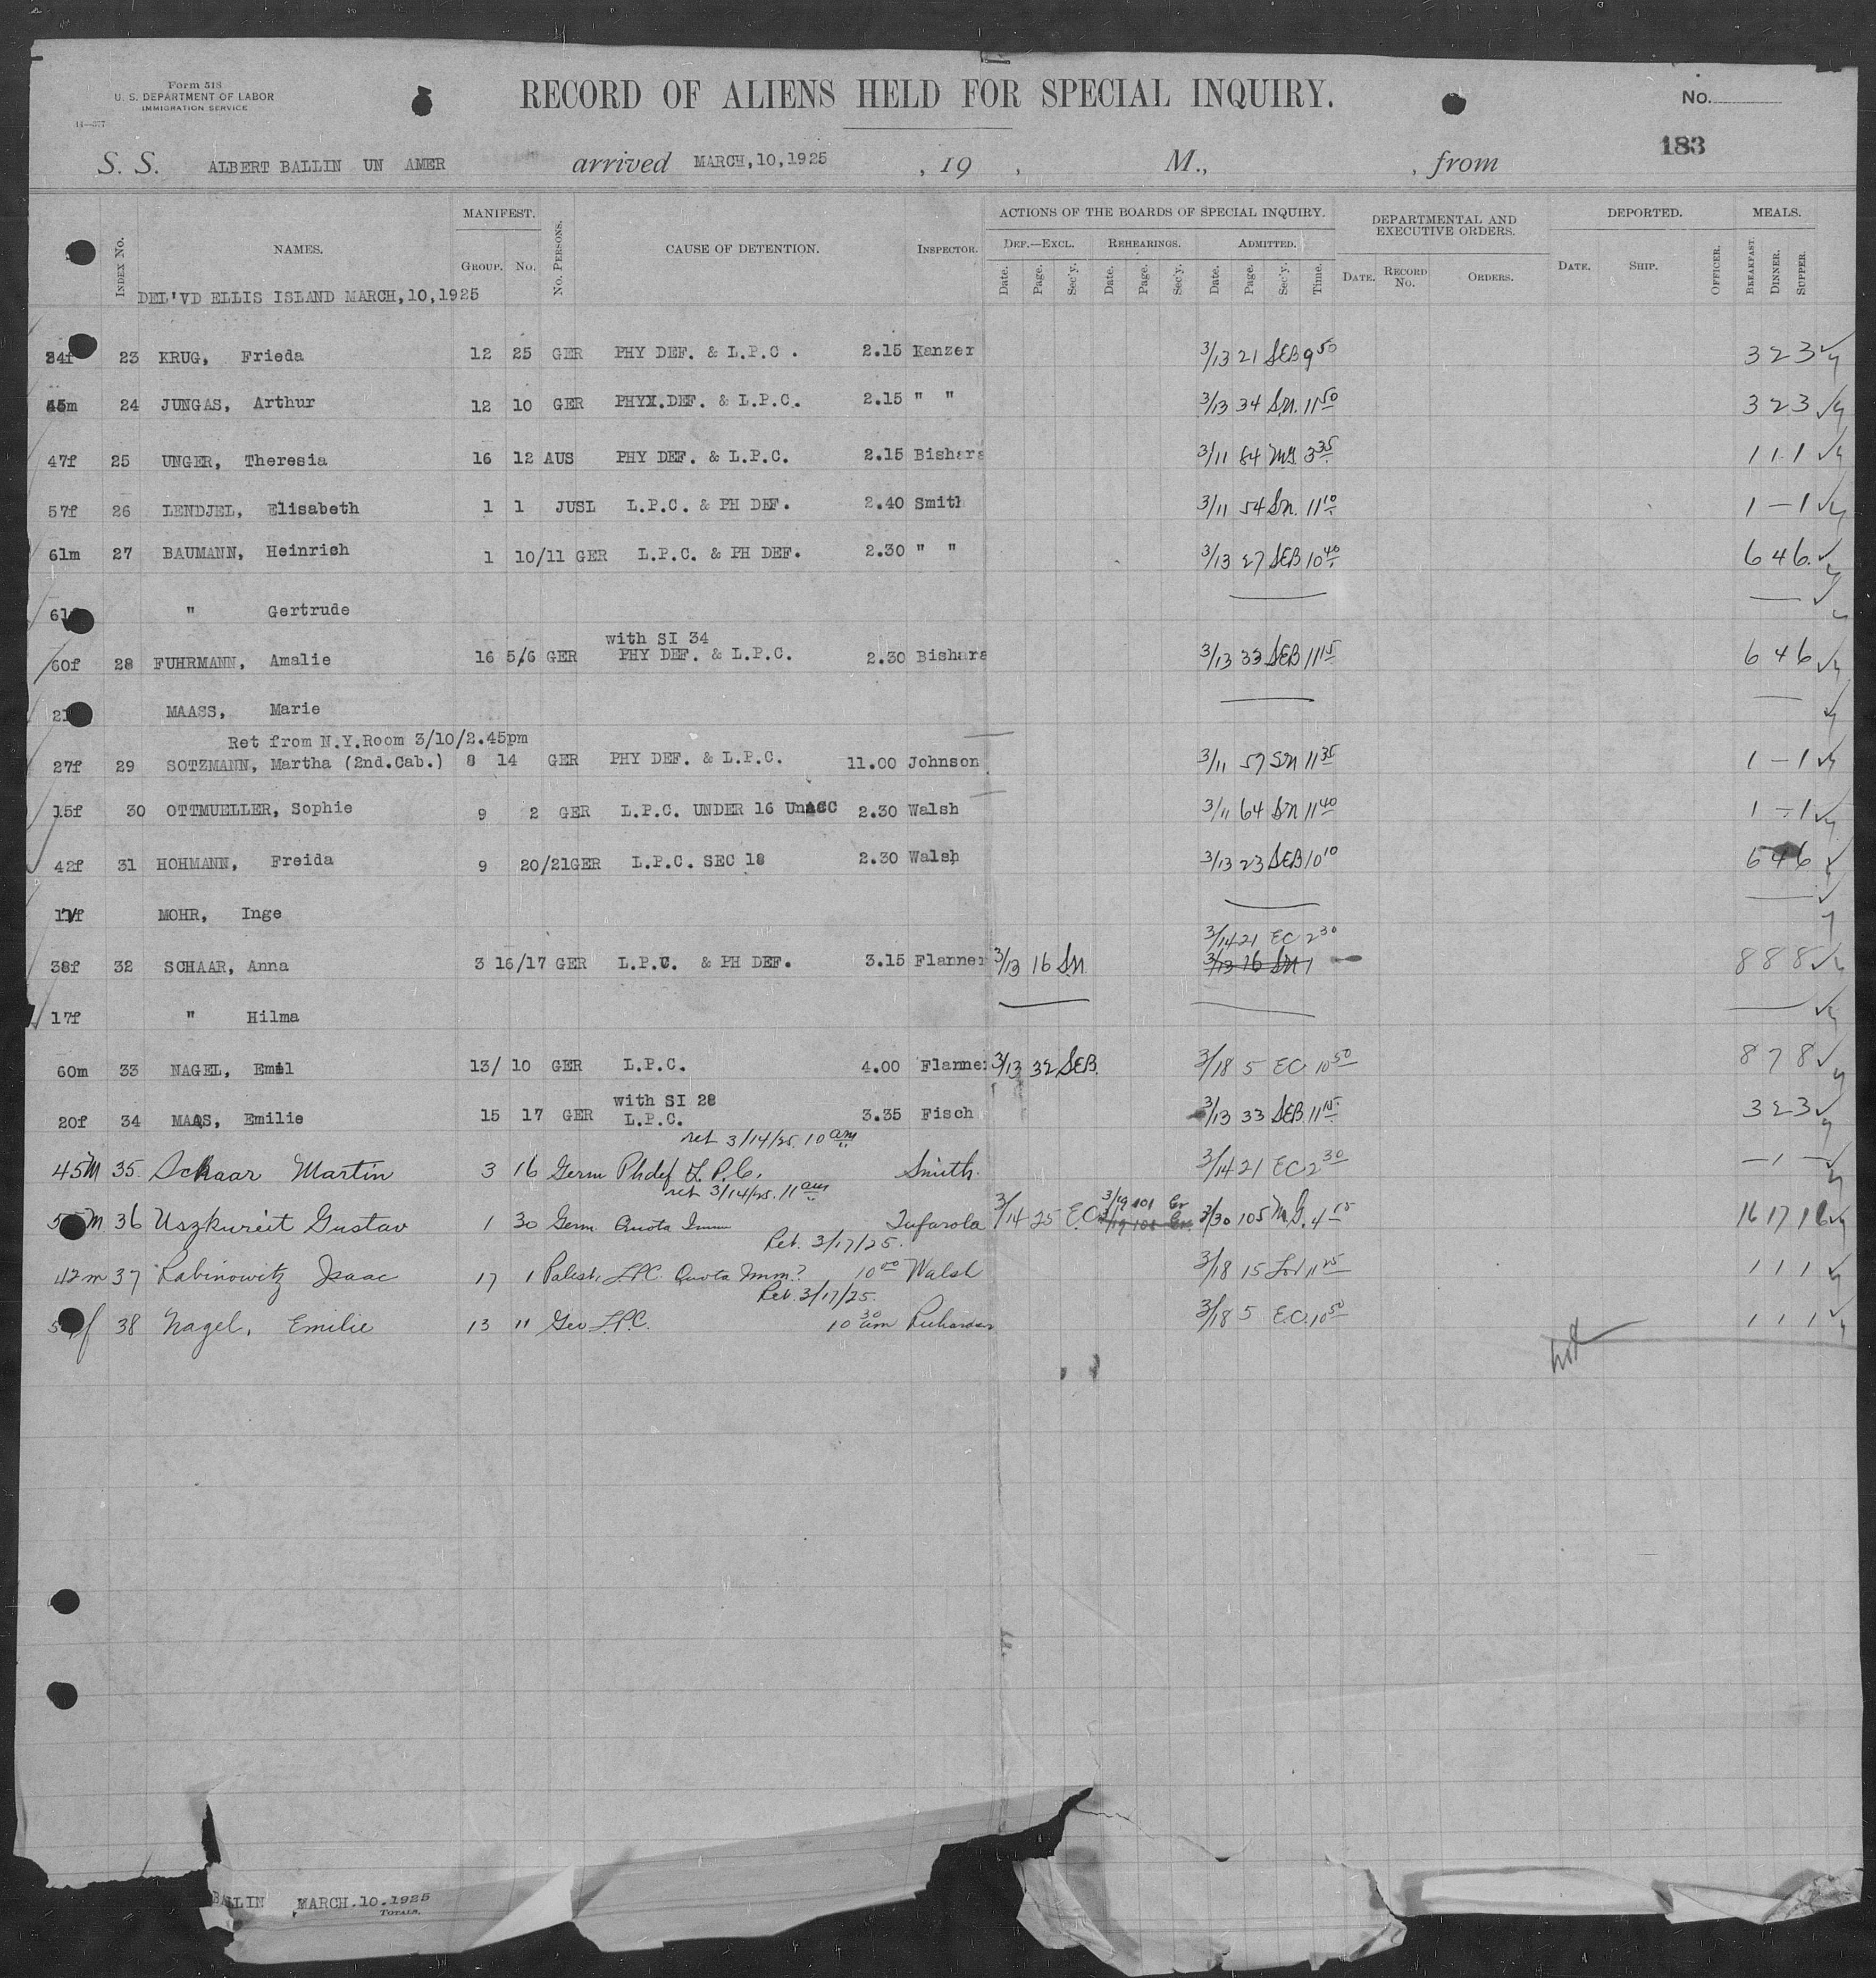 Form 518
U. S. DEPARTMENT OF LABOR
IMMIGRATION SERVICE
14—377
RECORD OF ALIENS HELD FOR SPECIAL INQUIRY.
No.
183
S. S. ALBERT BALLIN UN AMER arrived MARCH,10,1925 , 19 , M., , from
INDEX No. NAMES. MANIFEST. GROUP. No. No. PERSONS. CAUSE OF DETENTION. INSPECTOR. ACTIONS OF THE BOARDS OF SPECIAL INQUIRY. DEF.—EXCL. Date. Page. Sec'y. REHEARINGS. Date. Page. Sec'y. ADMITTED. Date. Page. Sec'y. Time. DEPARTMENTAL AND EXECUTIVE ORDERS. DATE. RECORD No. ORDERS. DEPORTED. DATE. SHIP. OFFICER. MEALS. BREAKFAST. DINNER. SUPPER.
DEL'VD ELLIS ISLAND MARCH,10,1925
23 KRUG, Frieda 12 25 GER PHY DEF. & L.P.C . 2.15 Kanzer 3/13 21 SEB 9 50 3 2 3
24 JUNGAS, Arthur 12 10 GER PHYX.DEF. & L.P.C. 2.15 " " 3/13 34 Sn. 11 50 3 2 3
47f 25 UNGER, Theresia 16 12 AUS PHY DEF. & L.P.C. 2.15 Bishara 3/11 84 MG 3 35 1 1 1
57f 26 LENDJEL, Elisabeth 1 1 JUSL L.P.C. & PH DEF. 2.40 Smith 3/11 54 Sn. 11 10 1 – 1
61m 27 BAUMANN, Heinrich 1 10/11 GER L.P.C. & PH DEF. 2.30 " " 3/13 27 SEB 10 40 6 4 6
" Gertrude
with SI 34
60f 28 FUHRMANN, Amalie 16 5/6 GER PHY DEF. & L.P.C. 2.30 Bishara 3/13 33 SEB 11 15 6 4 6
MAASS, Marie
Ret from N.Y.Room 3/10/2.45pm
27f 29 SOTZMANN, Martha (2nd.Cab.) 8 14 GER PHY DEF. & L.P.C. 11.00 Johnson 3/11 57 Sn 11 35 1 – 1
15f 30 OTTMUELLER, Sophie 9 2 GER L.P.C. UNDER 16 UnACC 2.30 Walsh 3/11 64 Sn 11 40 1 – 1
42f 31 HOHMANN, Freida 9 20/21GER L.P.C. SEC 18 2.30 Walsh 3/13 23 SEB 10 10 6 4 6
MOHR, Inge
3/14 21 EC 2 30
38f 32 SCHAAR, Anna 3 16/17 GER L.P.C. & PH DEF. 3.15 Flanner 3/13 16 Sn 3/13 16 Sn 8 8 8
17f " Hilma
60m 33 NAGEL, Emil 13/ 10 GER L.P.C. 4.00 Flanne 3/13 32 SEB. 3/18 5 EC 10 50 8 7 8
with SI 28
20f 34 MAAS, Emilie 15 17 GER L.P.C. 3.35 Fisch 3/13 33 SEB. 11 15 3 2 3
ret 3/14/25. 10 am
45m 35 Schaar Martin 3 16 Germ Phdef L.P.C. Smith. 3/14 21 EC 2 30 – 1 –
ret 3/14/25. 11 am
36 Uszkureit Gustav 1 30 Germ. Quota Imm Tufarola 3/14 25 E.C. 3/19 101 3/30 105 M.G. 4 15 16 17 16
Ret. 3/17/25.
42m 37 Rabinowitz Isaac 17 1 Palest. LPC. Quota Imm.? 10 00 Walsh 3/18 15 11 25 1 1 1
Ret. 3/17/25.
38 Nagel, Emilie 13 11 Ger LPC. 10 30 am 3/18 5 EC. 10 50 1 1 1
BALLIN MARCH.10.1925
TOTALS.